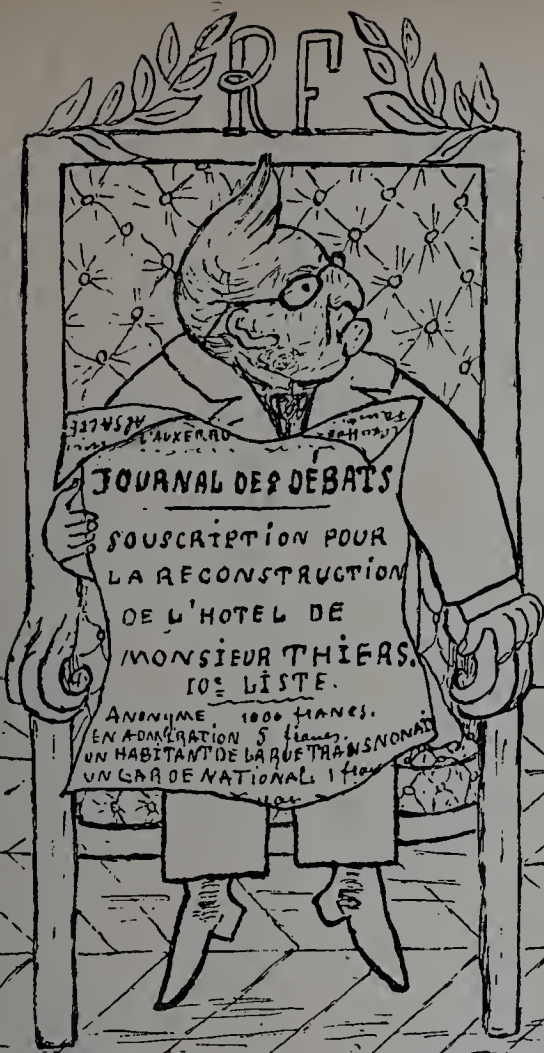 RF
L'AUXERRO
JOURNAL DES DÉBATS
SOUSCRIPTION POUR
LA RECONSTRUCTION
DE L'HOTEL DE
MONSIEUR THIERS.
10e LISTE.
ANONYME 1000 francs.
EN ADMIRATION 5 francs.
UN HABITANT DE LA RUE TRANSNONAI
UN GARDE NATIONAL 1 fran